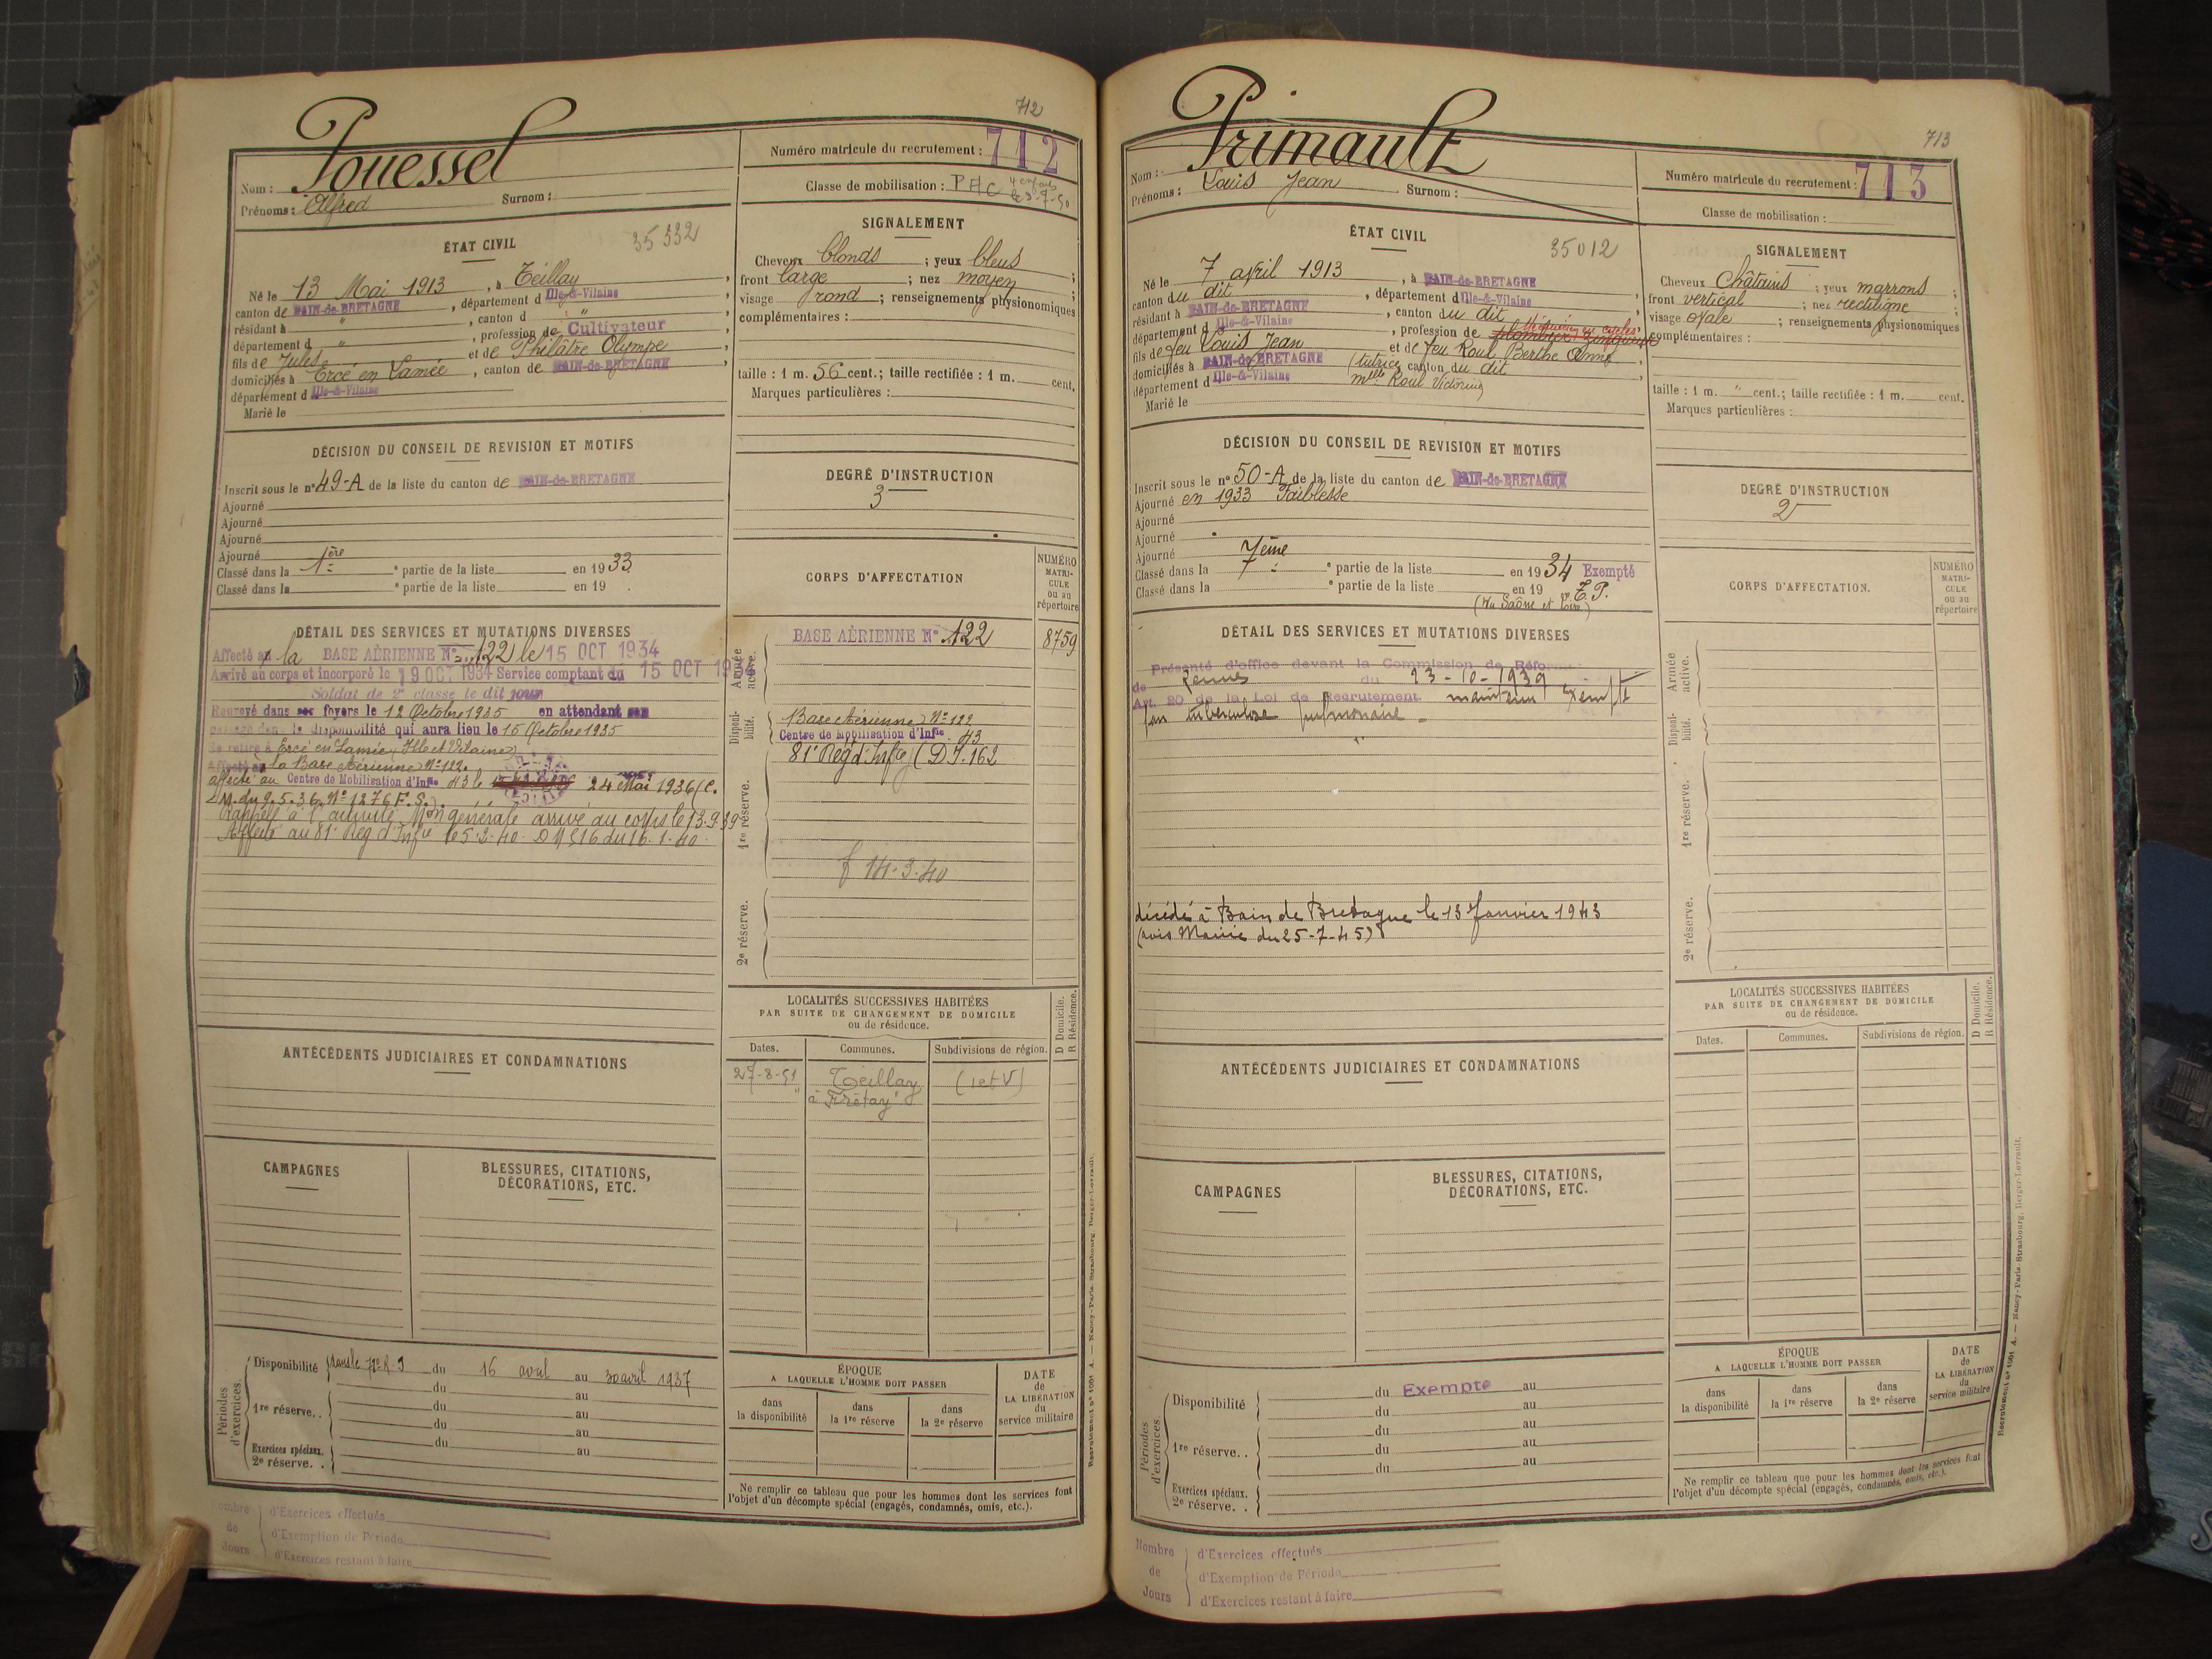 712
Pouessel
Nom :
Prénoms : Alfred
Surnom :
Numéro matricule du recrutement : 712
Classe de mobilisation : P H C 4 enfants
ÉTAT CIVIL
35 332
Né le 13 Mai 1913, à Teillay,
canton de BAIN-de-BRETAGNE, département d Ille-&-Vilaine,
résidant à ", canton d ",
département d ", profession de Cultivateur,
fils de Jules et de Philâtre Olympe,
domiciliés à Ercé en Lamée, canton de BAIN-de-BRETAGNE,
département d Ille-&-Vilaine
Marié le
SIGNALEMENT
Cheveux blonds ; yeux bleus ;
front large ; nez moyen ;
visage rond ; renseignements physionomiques
complémentaires :
taille : 1 m. 56 cent.; taille rectifiée : 1 m. cent.
Marques particulières :
DÉCISION DU CONSEIL DE REVISION ET MOTIFS
Inscrit sous le n° 49-A de la liste du canton de BAIN-de-BRETAGNE
Ajourné
Ajourné
Ajourné
Ajourné
Classé dans la 1ère partie de la liste en 1933
Classé dans la e partie de la liste en 19 .
DEGRÉ D'INSTRUCTION
3
CORPS D'AFFECTATION
NUMÉRO MATRICULE ou au répertoire
DÉTAIL DES SERVICES ET MUTATIONS DIVERSES
Affecté à la BASE AÉRIENNE N° 122 le 15 OCT 1934
Arrivé au corps et incorporé le 19 OCT 1934 Service comptant du 15 OCT 1934
Soldat de 2e classe le dit jour
Renvoyé dans ses foyers le 12 Octobre 1935 en attendant son
passage dans la disponibilité qui aura lieu le 15 Octobre 1935
Se retire à Ercé en Lamée, Ille et Vilaine
Affecté à la Base Aérienne N° 122.
affecté au Centre de Mobilisation d'Infie 43 le 24 Mai 1936 (C.
M. du 9.5.36, N° 1276 F.S.)
Rappelé à l'activité Mon générale arrivé au corps le 13.9.39
Affecté au 81e Reg d'Infie le 5.2.40 DM 516 du 16.1.40.
Armée active.
BASE AÉRIENNE N° 122
8759
Disponibilité.
Base Aérienne N° 122
Centre de Mobilisation d'Infie 43
81e Reg d'Infie (D.I. 162
1re réserve.
f 14-3-40
2e réserve.
LOCALITÉS SUCCESSIVES HABITÉES
PAR SUITE DE CHANGEMENT DE DOMICILE
ou de résidence.
D Domicile.
R Résidence.
Dates.
Communes.
Subdivisions de région.
27-8-51
Teillay
(I et V)
à Frétay
ANTÉCÉDENTS JUDICIAIRES ET CONDAMNATIONS
CAMPAGNES
BLESSURES, CITATIONS,
DÉCORATIONS, ETC.
Périodes d'exercices.
Disponibilité du 16 avril au 30 avril 1937
du au
1re réserve. . du au
du au
du au
Exercices spéciaux.
2e réserve. .
ÉPOQUE
A LAQUELLE L'HOMME DOIT PASSER
dans la disponibilité
dans la 1re réserve
dans la 2e réserve
DATE de LA LIBÉRATION du service militaire
Ne remplir ce tableau que pour les hommes dont les services font
l'objet d'un décompte spécial (engagés, condamnés, omis, etc.).
Recrutement n° 1091 A. — Nancy-Paris-Strasbourg. Berger-Levrault.
Nombre de Jours
d'Exercices effectués
d'Exemption de Période
d'Exercices restant à faire
713
Primault
Nom :
Prénoms : Louis Jean
Surnom :
Numéro matricule du recrutement : 713
Classe de mobilisation :
ÉTAT CIVIL
35012
Né le 7 avril 1913, à BAIN-de-BRETAGNE,
canton du dit, département d Ille-&-Vilaine,
résidant à BAIN-de-BRETAGNE, canton du dit,
département d Ille-&-Vilaine, profession de plombier zingueur
Mécanicien en cycles
fils de feu Louis Jean et de feu Raul Berthe Anne,
domiciliés à BAIN-de-BRETAGNE (tutrice canton du dit,
département d Ille-&-Vilaine melle Raul Victorine)
Marié le
SIGNALEMENT
Cheveux châtains ; yeux marrons ;
front vertical ; nez rectiligne ;
visage ovale ; renseignements physionomiques
complémentaires :
taille : 1 m. " cent.; taille rectifiée : 1 m. cent.
Marques particulières :
DÉCISION DU CONSEIL DE REVISION ET MOTIFS
Inscrit sous le n° 50-A de la liste du canton de BAIN-de-BRETAGNE
Ajourné en 1933 Faiblesse
Ajourné
Ajourné
Ajourné
Classé dans la 7ème partie de la liste en 1934 Exempté
Classé dans la e partie de la liste en 19 T.P.
(Vu Saône et Loire)
DEGRÉ D'INSTRUCTION
2
CORPS D'AFFECTATION.
NUMÉRO MATRICULE ou au répertoire
DÉTAIL DES SERVICES ET MUTATIONS DIVERSES
Présenté d'office devant la Commission de Réforme
de Rennes du 23-10-1939
Art. 20 de la Loi de Recrutement. maintenu Exempté
pour tuberculose pulmonaire.
décédé à Bain de Bretagne le 13 Janvier 1943
(avis Mairie du 25-7-45)
Armée active.
Disponibilité.
1re réserve.
2e réserve.
LOCALITÉS SUCCESSIVES HABITÉES
PAR SUITE DE CHANGEMENT DE DOMICILE
ou de résidence.
D Domicile.
R Résidence.
Dates.
Communes.
Subdivisions de région.
ANTÉCÉDENTS JUDICIAIRES ET CONDAMNATIONS
CAMPAGNES
BLESSURES, CITATIONS,
DÉCORATIONS, ETC.
Périodes d'exercices.
Disponibilité du Exempté au
du au
du au
1re réserve. . du au
du au
Exercices spéciaux.
2e réserve. .
ÉPOQUE
A LAQUELLE L'HOMME DOIT PASSER
dans la disponibilité
dans la 1re réserve
dans la 2e réserve
DATE de LA LIBÉRATION du service militaire
Ne remplir ce tableau que pour les hommes dont les services font
l'objet d'un décompte spécial (engagés, condamnés, omis, etc.).
Recrutement n° 1091 A. — Nancy-Paris-Strasbourg. Berger-Levrault.
Nombre de Jours
d'Exercices effectués
d'Exemption de Période
d'Exercices restant à faire